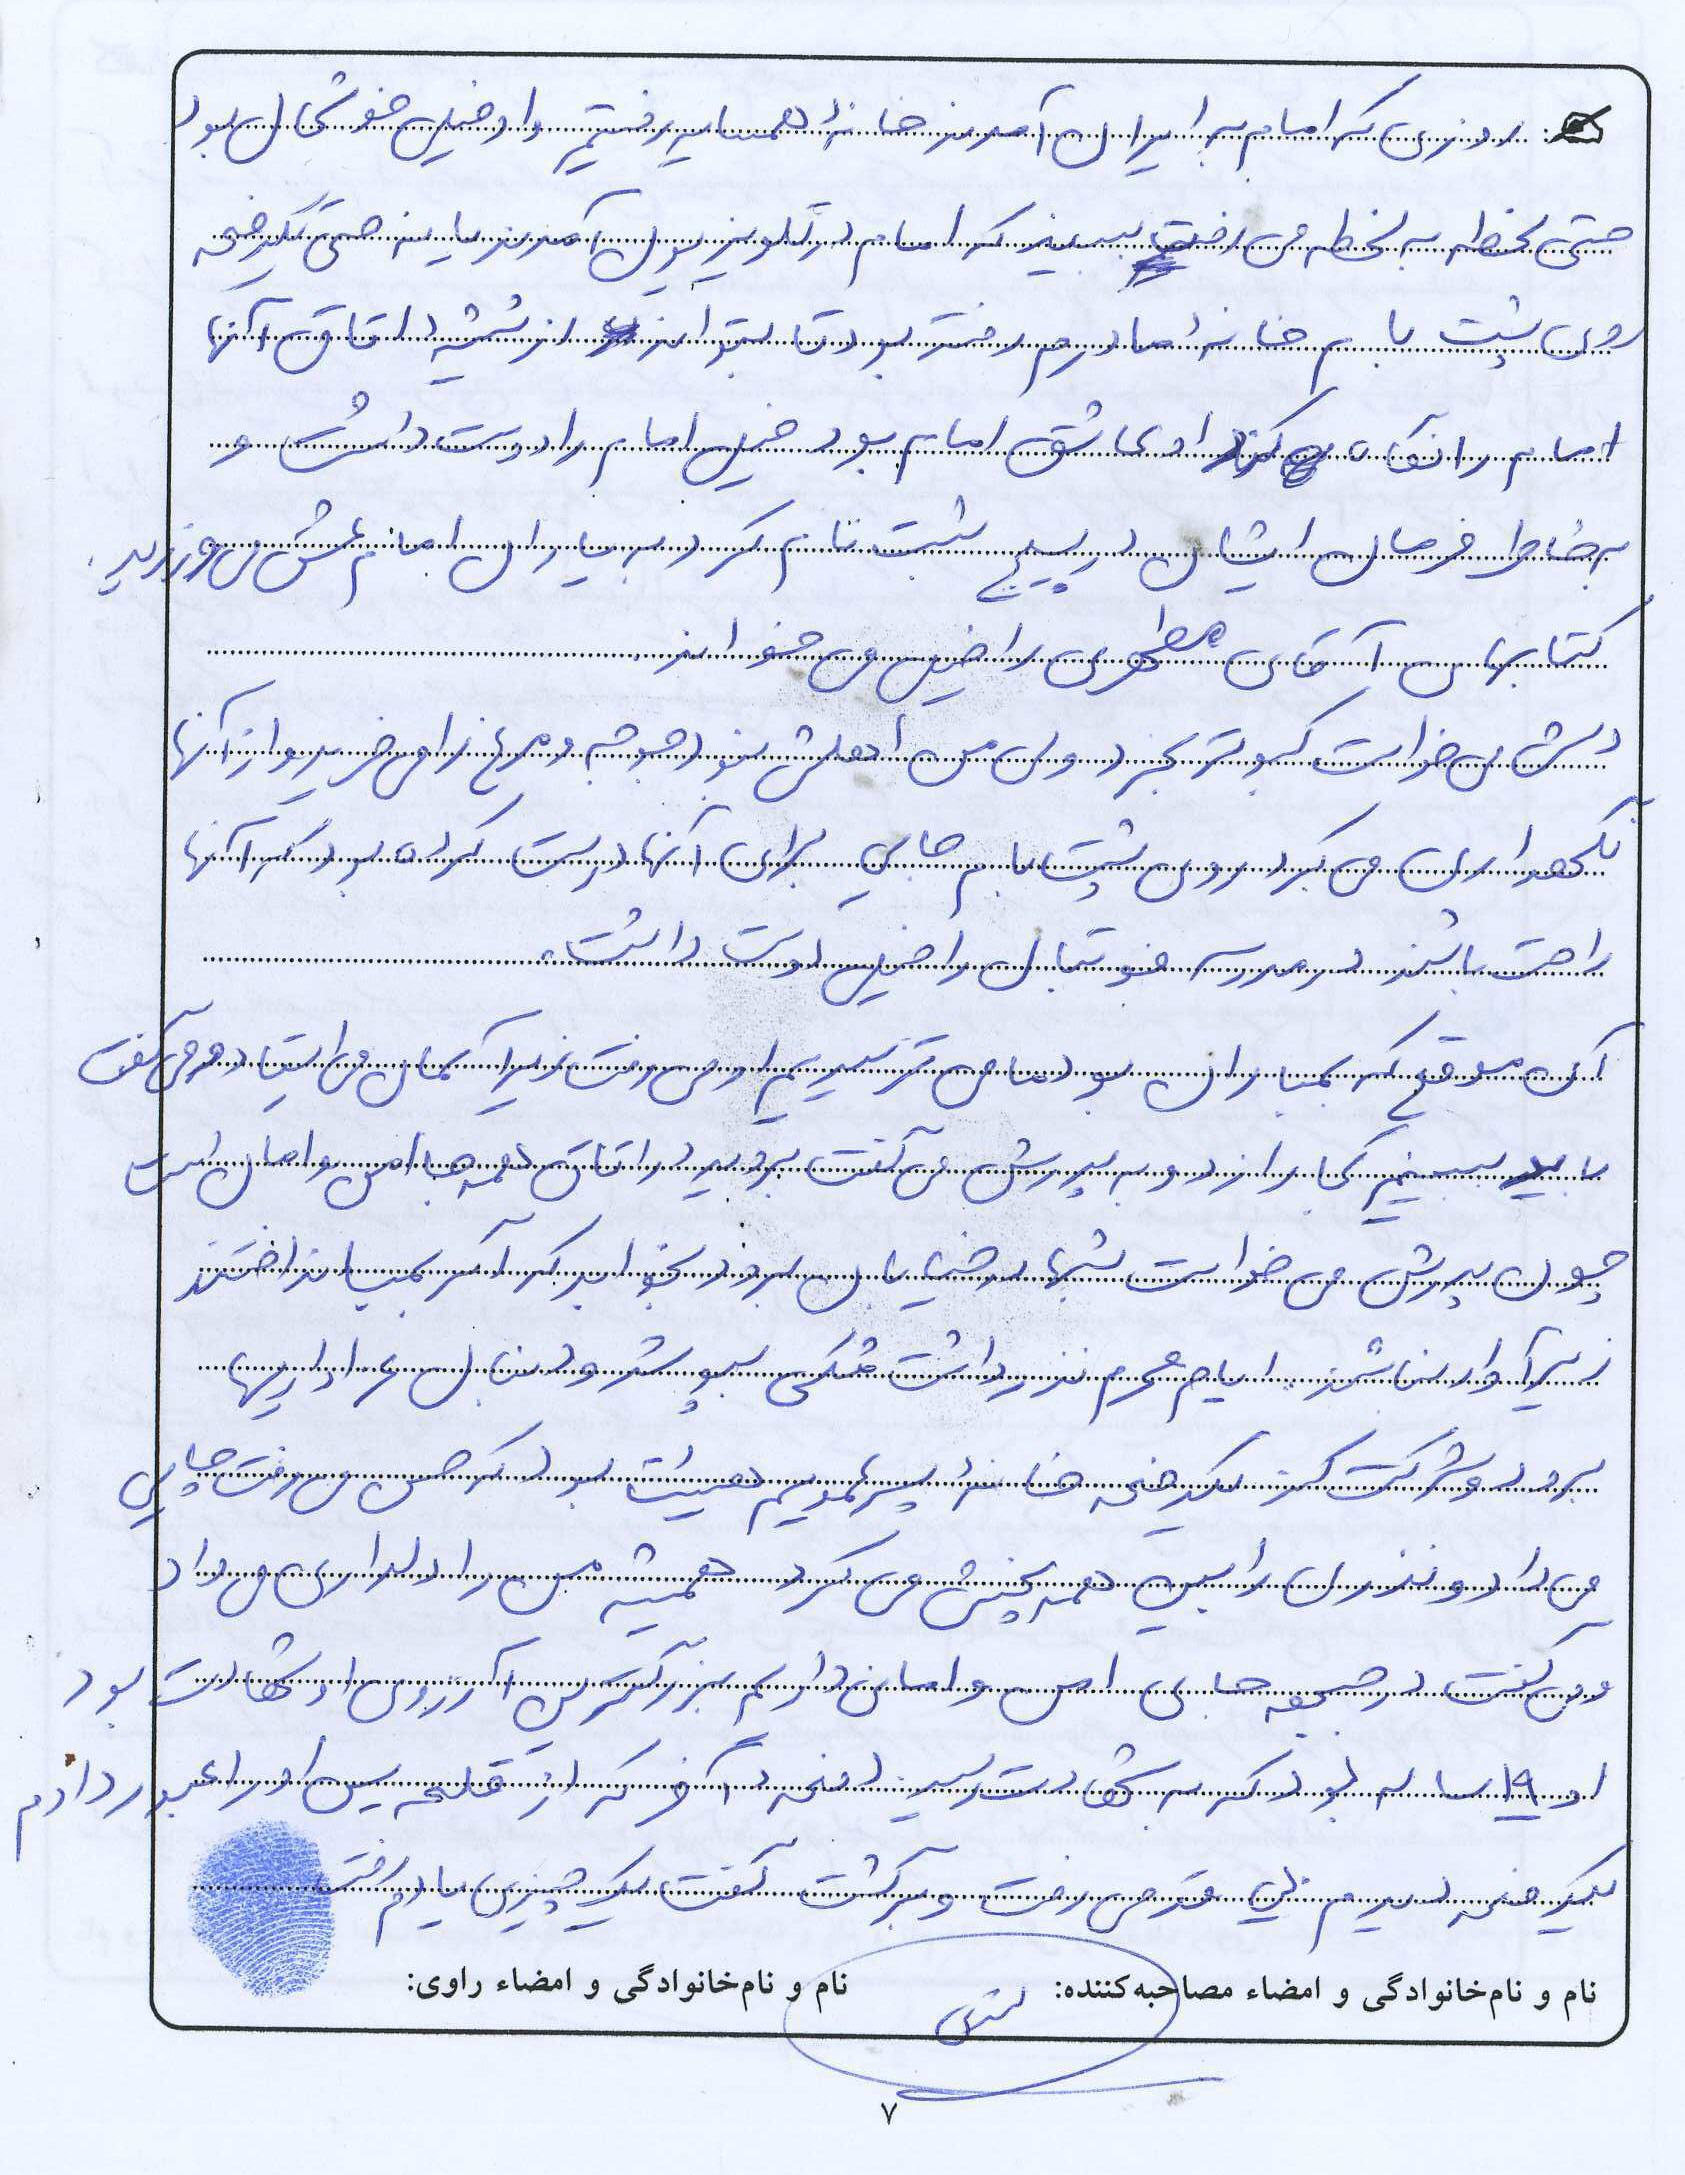 روزی که امام به ایران آمدند خانهٔ همسایه رفتیم و او خیلی خوشحال بود
حتی لحظه به لحظه می رفت ببیند که امام در تلویزیون آمدند یا نه حتی یکدفعه
روی پشت بام خانه مادرم رفته بود تا بتواند از شیشه اتاق آنها
امام را نگاه کند او عاشق امام بود خیلی امام را دوست داشت و
به خاطر فرمان ایشان در بسیج ثبت نام کرد به یاران امام عشق می ورزید.
کتابهای آقای مطهری را خیلی می خواند.
دلش می خواست کبوتر بخرد ولی من اهلش نبود جوجه و مرغ را می خرید و از آنها
نگهداری می کرد روی پشت بام جایی برای آنها درست کرده بود که آنها
راحت باشند در مدرسه فوتبال را خیلی دوست داشت.
آن موقع که بمباران بود ما می ترسیدیم او می رفت زیر آسمان می ایستاد و می گفت
باید ببینم کجا را زد و به پدرش می گفت بروید در اتاق همه جا امن و امان است
چون پدرش می خواست شبها در خیابان برود بخوابد که اگر بمب انداختند
زیر آوار نباشند. ایام محرم نذر داشت مشکی بپوشد و دنبال عزاداریها
برود و شرکت کند یکدفعه خانهٔ پسرعمویم هیئت بود که حسن می رفت چایی
می داد و نذری را بین همه پخش می کرد همیشه من را دلداری می داد
و می گفت در جبهه جای امن و امان داریم بزرگترین آرزوی او شهادت بود
او ۱۹ ساله بود که به شهادت رسید دفعه آخر که از قلعه یس او را عبور دادم
یکدفعه دیدم این قدر می رفت و برگشت گفت یک چیزی یادم رفت
نام و نام‌خانوادگی و امضاء مصاحبه‌کننده: نام و نام‌خانوادگی و امضاء راوی:
۷